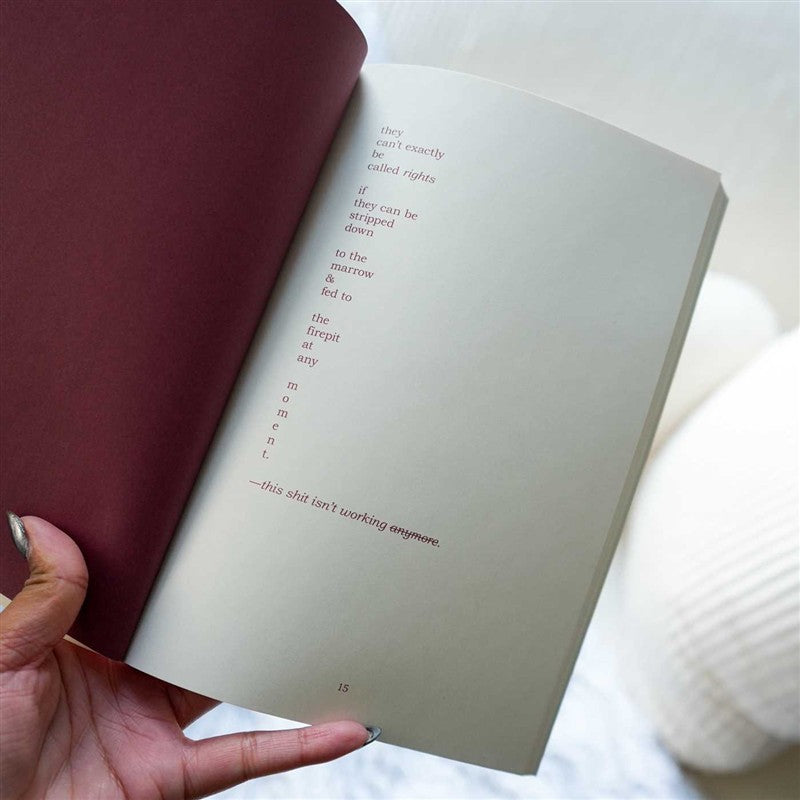 they
can't exactly
be
called rights
if
they can be
stripped
down
to the
marrow
&
fed to
the
firepit
at
any
m
o
m
e
n
t.
—this shit isn't working anymore.
15